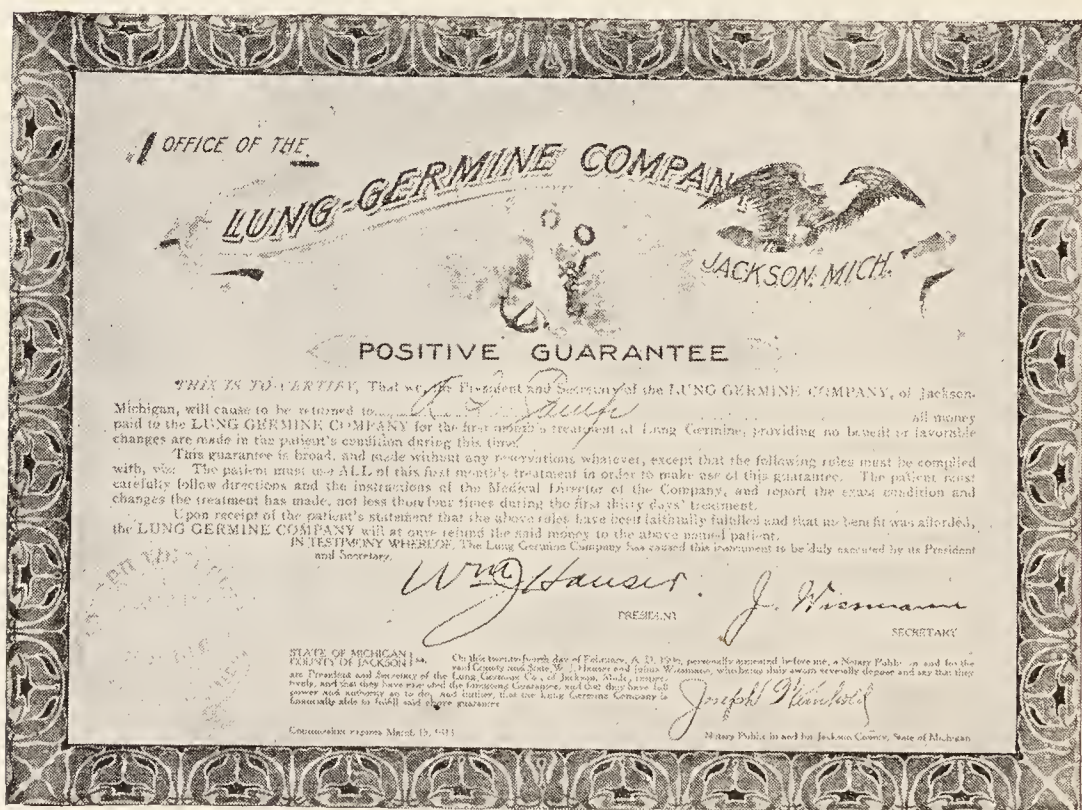 OFFICE OF THE
LUNG-GERMINE COMPANY
JACKSON, MICH.
POSITIVE GUARANTEE
THIS IS TO CERTIFY, That we, the President and Secretary of the LUNG GERMINE COMPANY, of Jackson,
Michigan, will cause to be returned to all money
paid to the LUNG GERMINE COMPANY for the first month's treatment of Lung Germine, providing no benefit or favorable
changes are made in the patient's condition during this time.
This guarantee is broad, and made without any reservations whatever, except that the following rules must be complied
with, viz: The patient must use ALL of this first month's treatment in order to make use of this guarantee. The patient must
carefully follow directions and the instructions of the Medical Director of the Company, and report the exact condition and
changes the treatment has made, not less than four times during the first thirty days' treatment.
Upon receipt of the patient's statement that the above rules have been faithfully fulfilled and that no benefit was afforded,
the LUNG GERMINE COMPANY will at once refund the said money to the above named patient.
IN TESTIMONY WHEREOF, The Lung Germine Company has caused this instrument to be duly executed by its President
and Secretary.
Wm J Hauser.
PRESIDENT
J. Wiesmann
SECRETARY
STATE OF MICHIGAN
COUNTY OF JACKSON ss. On this twenty-fourth day of February, A. D. personally appeared before me, a Notary Public in and for the
said County and State, W. J. Hauser and Julius Wiesmann, who being duly sworn severally depose and say that they
are President and Secretary of the Lung Germine Co., of Jackson, Mich., respec-
tively, and that they have executed the foregoing Guarantee, and that they have full
power and authority so to do, and further, that the Lung Germine Company is
financially able to fulfill said above guarantee
Joseph Weinhold
Commission expires March 15,
Notary Public in and for Jackson County, State of Michigan